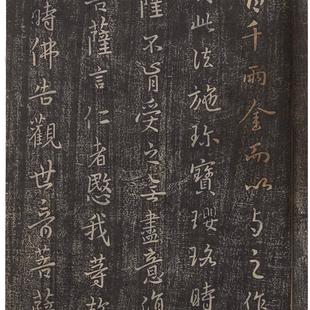 百千兩金而以与之作
此法施珍寶瓔珞時
薩不肯受之无盡意復
菩薩言仁者愍我等故
時佛告觀世音菩薩